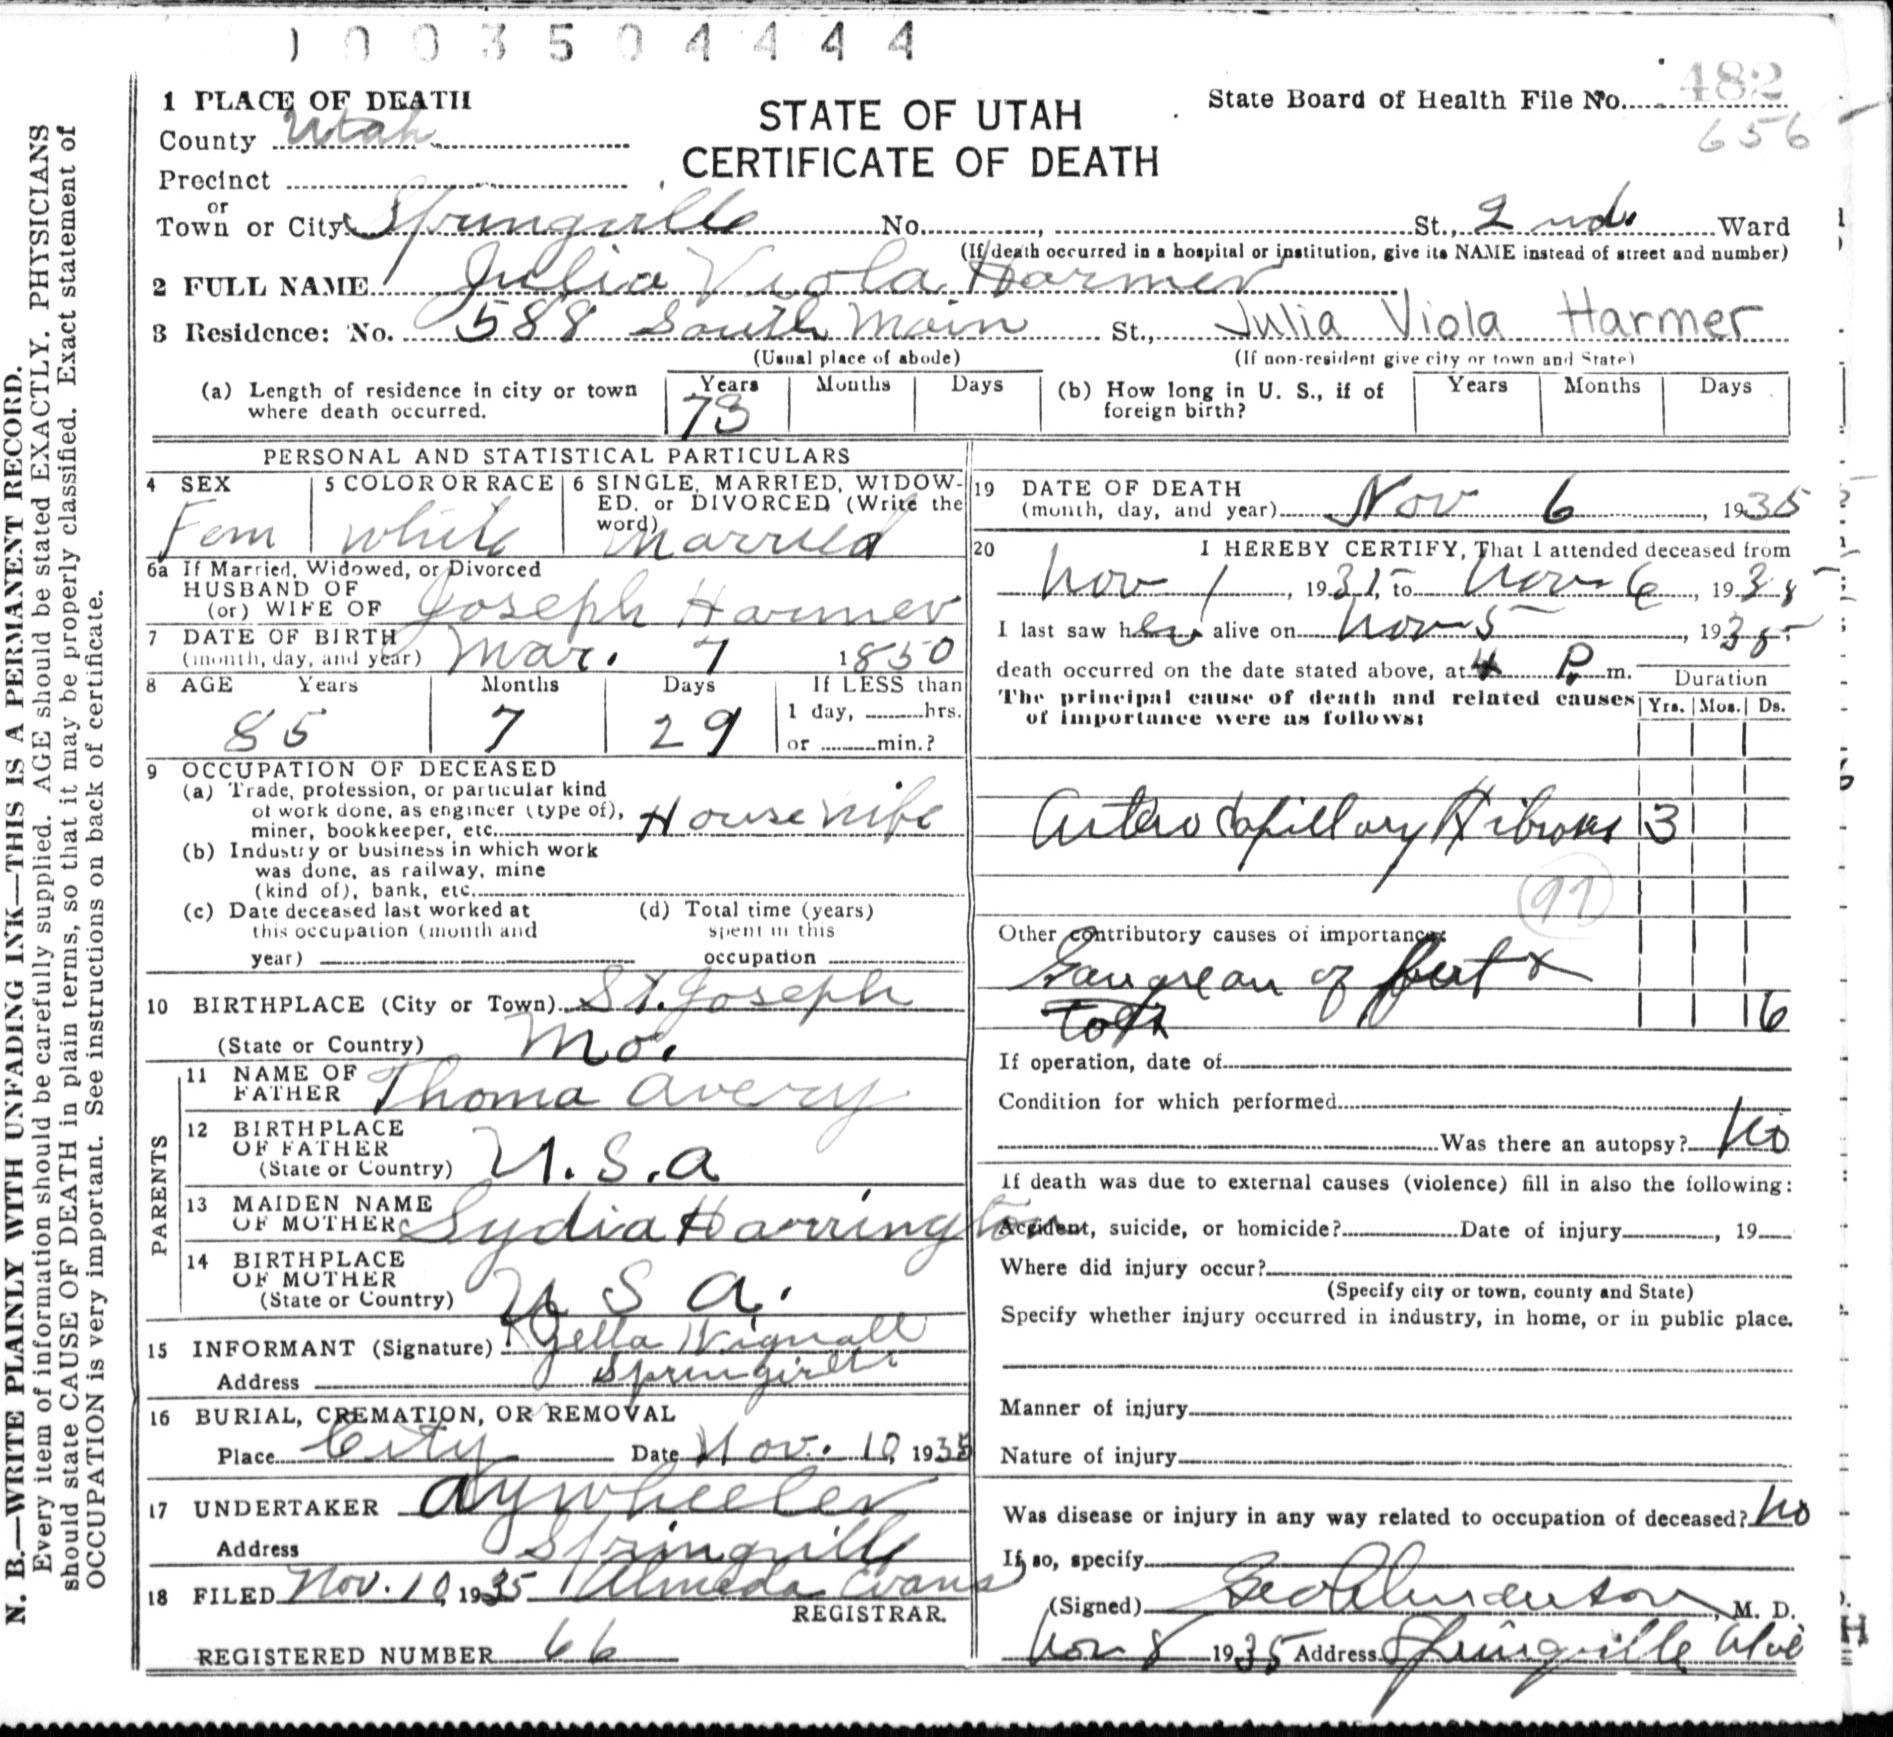 1003504444
1 PLACE OF DEATH
County Utah
Precinct
or
Town or City Springville No. St., 2nd. Ward
STATE OF UTAH
CERTIFICATE OF DEATH
State Board of Health File No. 482
656
(If death occurred in a hospital or institution, give its NAME instead of street and number)
2 FULL NAME Julia Viola Harmer
3 Residence: No. 588 South Main St., Julia Viola Harmer
(Usual place of abode) (If non-resident give city or town and State)
(a) Length of residence in city or town where death occurred. Years 73 Months Days (b) How long in U. S., if of foreign birth? Years Months Days
PERSONAL AND STATISTICAL PARTICULARS
4 SEX Fem
5 COLOR OR RACE White
6 SINGLE, MARRIED, WIDOW-
ED, or DIVORCED (Write the
word) Married
6a If Married, Widowed, or Divorced
HUSBAND OF
(or) WIFE OF Joseph Harmer
7 DATE OF BIRTH
(month, day, and year) Mar. 7 1850
8 AGE Years Months Days If LESS than
85 7 29 1 day, hrs.
or min.?
9 OCCUPATION OF DECEASED
(a) Trade, profession, or particular kind
of work done, as engineer (type of),
miner, bookkeeper, etc. Housewife
(b) Industry or business in which work
was done, as railway, mine
(kind of), bank, etc.
(c) Date deceased last worked at
this occupation (month and
year)
(d) Total time (years)
spent in this
occupation
10 BIRTHPLACE (City or Town) St. Joseph
(State or Country) Mo.
PARENTS
11 NAME OF
FATHER Thoma Avery
12 BIRTHPLACE
OF FATHER
(State or Country) U.S.a
13 MAIDEN NAME
OF MOTHER Lydia Harrington
14 BIRTHPLACE
OF MOTHER
(State or Country) U S a.
15 INFORMANT (Signature) Zella Wignall
Address Springville
16 BURIAL, CREMATION, OR REMOVAL
Place City Date Nov. 10, 1935
17 UNDERTAKER A y Wheeler
Address Springville
18 FILED Nov. 10, 1935 Almeda Evans
REGISTRAR.
REGISTERED NUMBER 66
19 DATE OF DEATH
(month, day, and year) Nov 6, 1935
20 I HEREBY CERTIFY, That I attended deceased from
Nov 1, 1935, to Nov 6, 1935
I last saw her alive on Nov 5, 1935
death occurred on the date stated above, at 4 P. m.
The principal cause of death and related causes
of importance were as follows:
Duration
Yrs. Mos. Ds.
Artero Capillary Fibrosis 3
97
Other contributory causes of importance:
Gangrean of feet &
6
If operation, date of
Condition for which performed
Was there an autopsy? No
If death was due to external causes (violence) fill in also the following:
Accident, suicide, or homicide? Date of injury, 19
Where did injury occur?
(Specify city or town, county and State)
Specify whether injury occurred in industry, in home, or in public place.
Manner of injury
Nature of injury
Was disease or injury in any way related to occupation of deceased? No
If so, specify
(Signed) Geo Anderson, M. D.
Nov 8 1935 Address Springville Utah
N. B.—WRITE PLAINLY WITH UNFADING INK—THIS IS A PERMANENT RECORD.
Every item of information should be carefully supplied. AGE should be stated EXACTLY. PHYSICIANS
should state CAUSE OF DEATH in plain terms, so that it may be properly classified. Exact statement of
OCCUPATION is very important. See instructions on back of certificate.